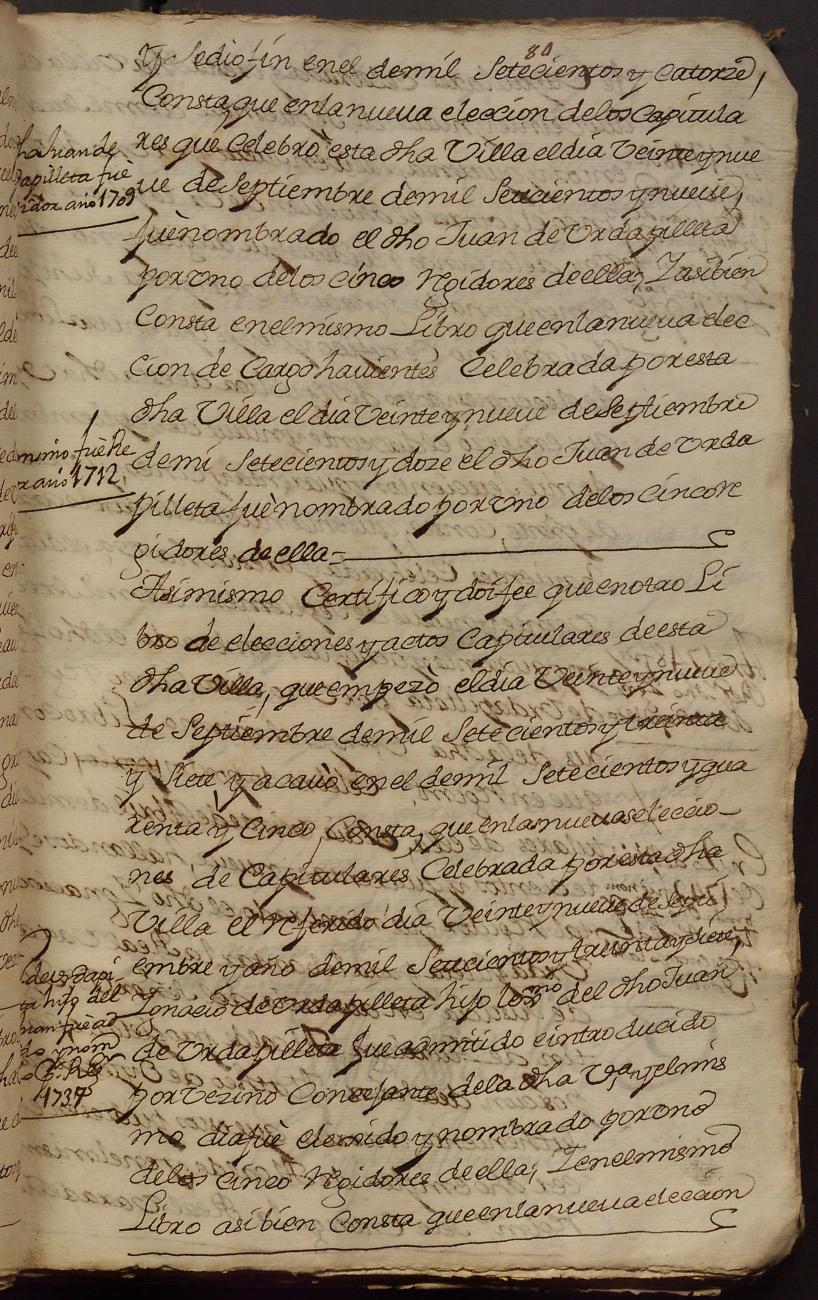 80
Y sedio fin enel demil Setecientos y Catorze,
Consta, que enlanueva eleccion delos Capitula
res que Celebrò esta dha Villa eldia Veinteynue
ue deSeptiembre demil Setecientos ynueue,
fuè nombrado el dho Juan de Urdapilleta
por vno delos cinco Rgidores deella; Iasibien
Consta enelmismo Libro que enlanueva elec
cion de Cargohauientes Celebrada por esta
dha Villa el dia Veinteynueue deSeptiembre
demi Setecientos y doze el dho Juan de Vrda
pilleta fuè nombrado por vno delos Cinco Re
gidores de ella=
Asimismo Certifico y doifee que enotro Li
bro de elecciones yactos Capitulares deesta
dha Villa, que empezò eldia Veinteynueue
de Septiembre demil Setecientos ytreinta
y Siete y acauò en el demil Setecientos y qua
renta y Cinco, Consta, que enlasnueuaseleccio
nes de Capitulares Celebrada por esta dha
Villa el referido dia Veinteynueue de Septi
embre yaño demil Setecientos ytreinta ysiete,
Ygnacio de Vrdapilleta hijo lexmo del dho Juan
de Vrdapilleta fue admitido eintroducido
por Vezino Concejante dela dha Va yelmis
mo dia fuè elexido y nombrado por vno
delos Cinco Rgidores de ella; Ienelmismo
Libro asibien Consta que enlanueva eleccion
ha Juan de
apilleta fuè
idor año 1709
mismo fuè Re
r año 1712
de Vrdapi
ta hijo del
1737